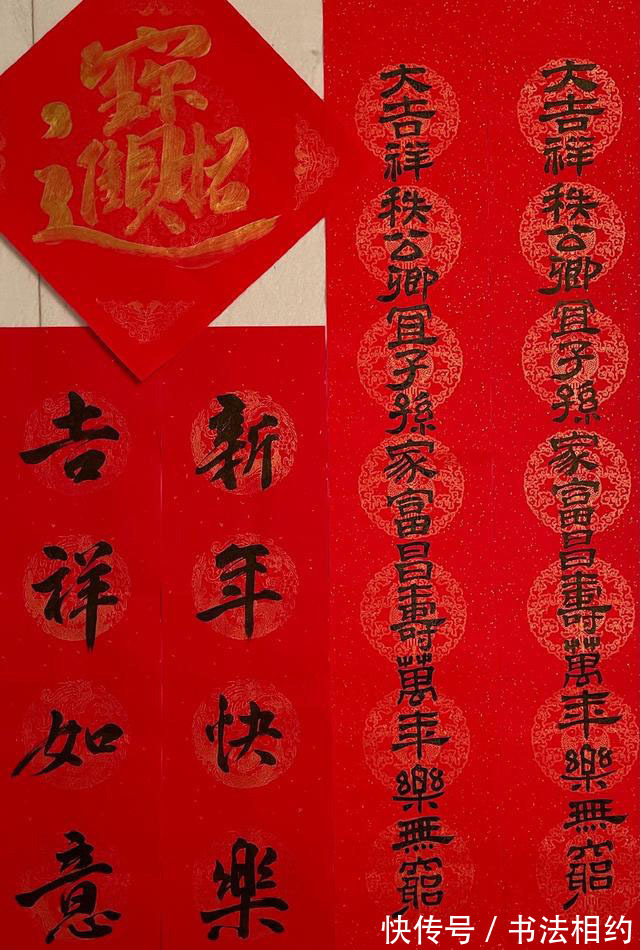 招財進寶
大吉祥秩公卿宜子孫家富昌壽萬年樂無窮
大吉祥秩公卿宜子孫家富昌壽萬年樂無窮
新年快樂
吉祥如意
快传号 / 书法相约